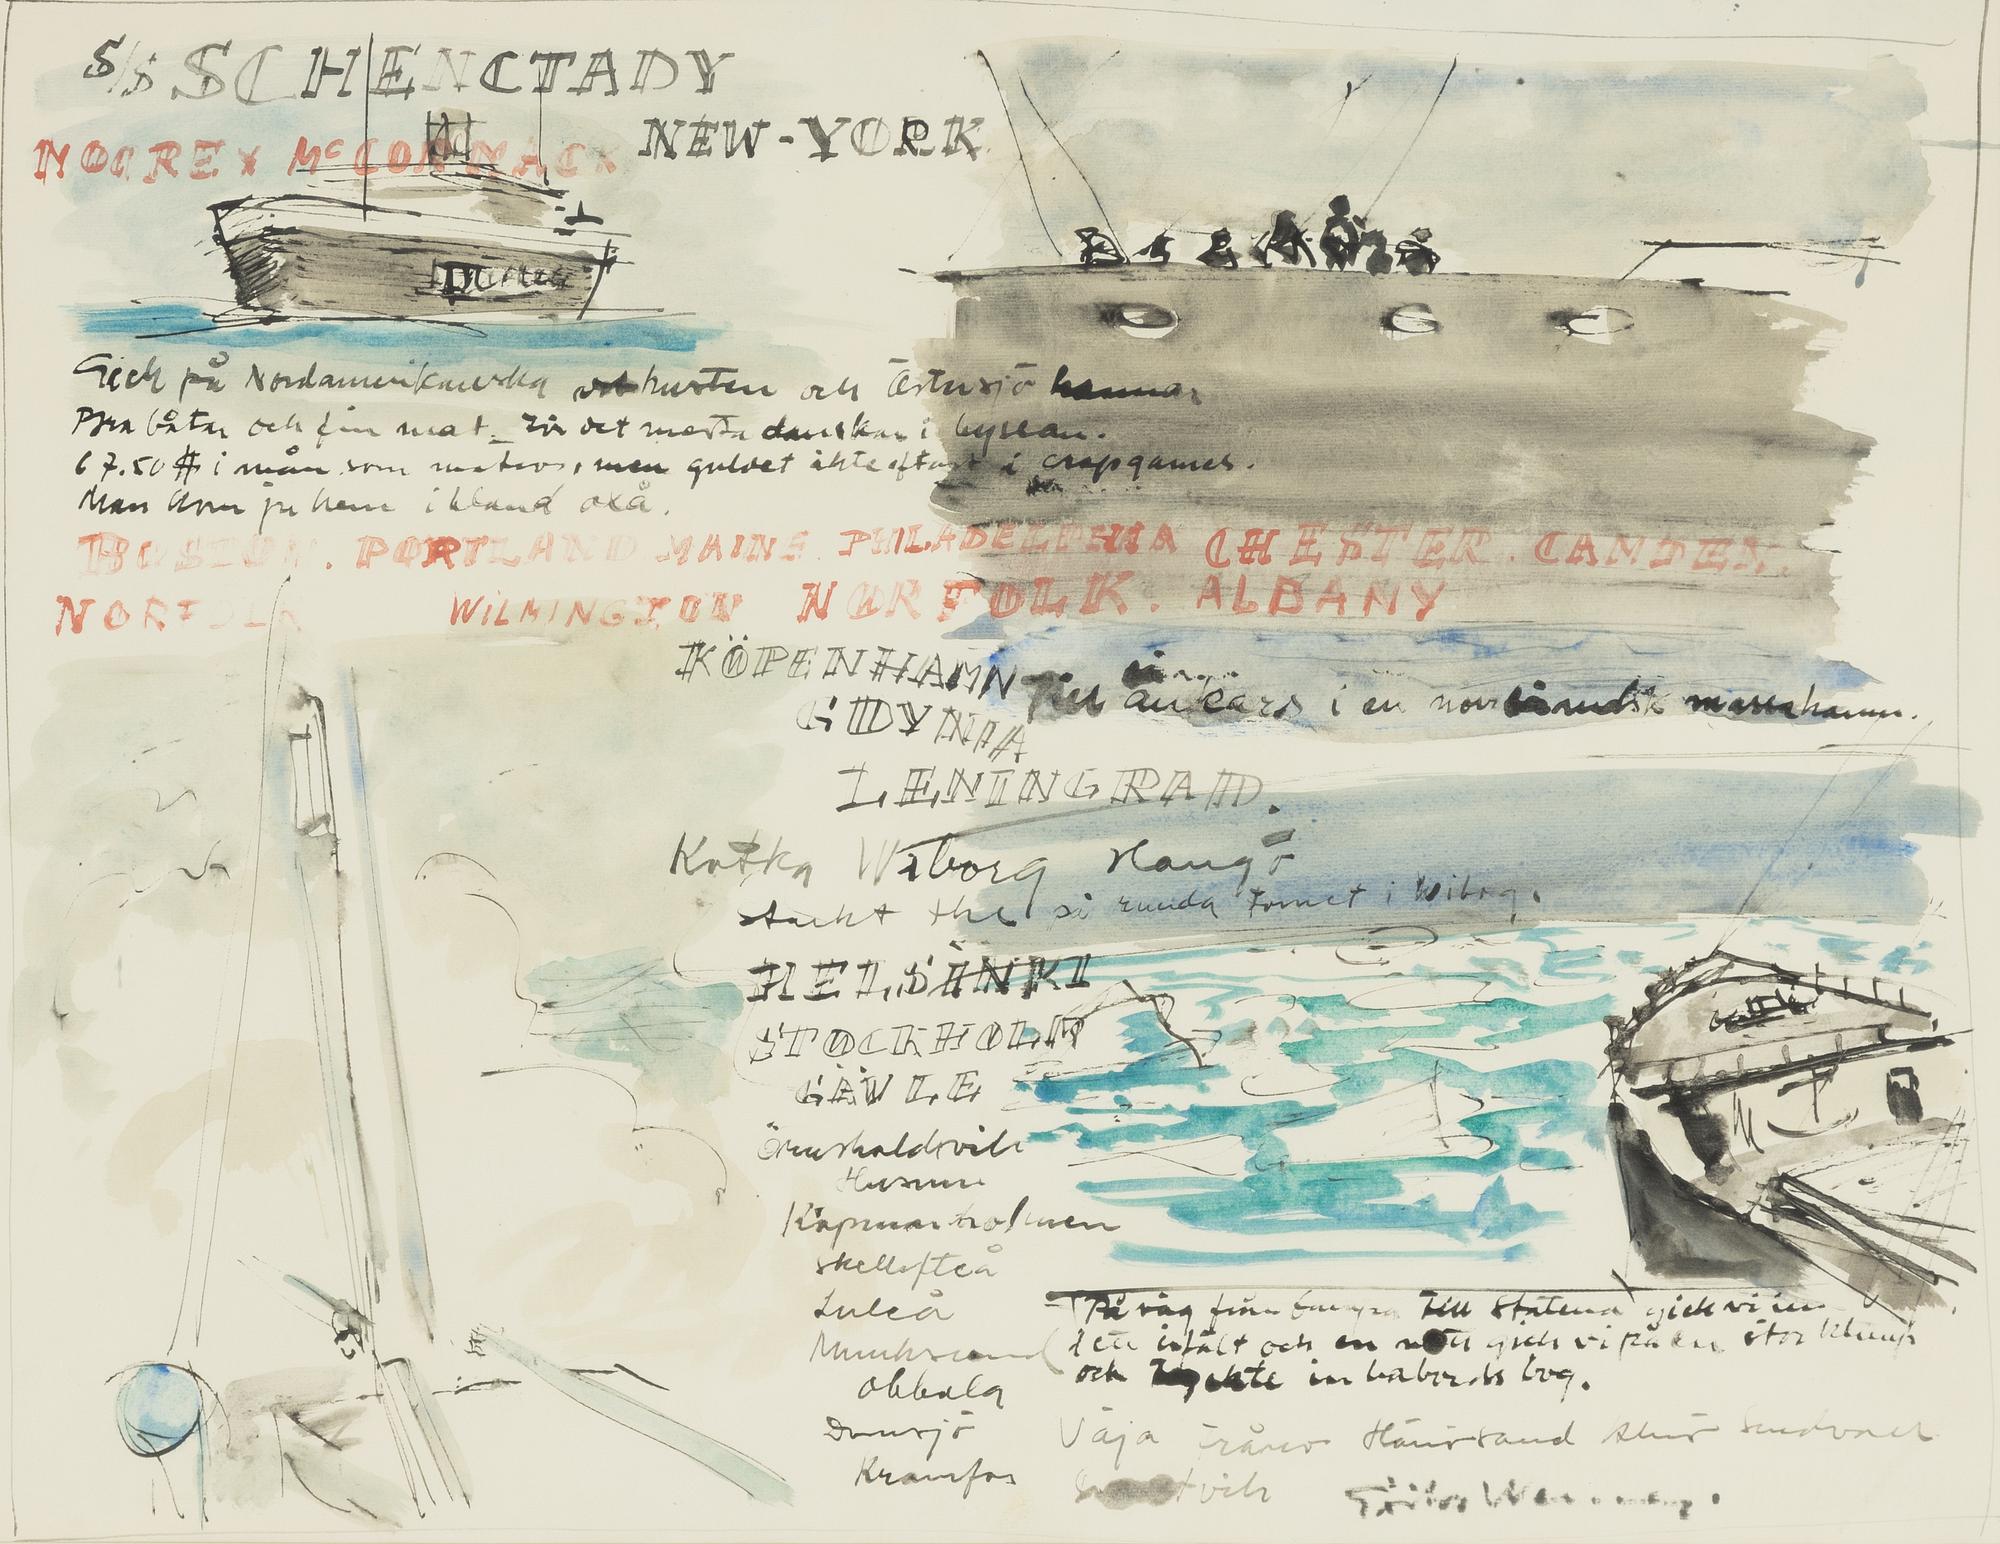 S/S SCHENCTADY
NEW-YORK
MCCORMACK
Gick på Nordamerikanska kusten och Östersjö hamnar
Bra båtar och fin mat. För det mesta danskar i byssan.
67.50 $ i mån som matros, men guldet åkte oftast i crapgames.
Man kom ju hem ibland oxå.
BOSTON. PORTLAND MAINE. PHILADELPHIA CHESTER. CAMDEN.
NORFOLK WILMINGTON NORFOLK. ALBANY
KÖPENHAMN
Till ankars i en norrländsk massahamn.
GDYNIA
LENINGRAD.
Kotka Wiborg Hangö
drack the på runda tornet i Wiborg.
HELSINKI
STOCKHOLM
GÄVLE
Örnsköldsvik
Husum
Köpmanholmen
Skellefteå
Luleå
Munksund
Obbola
Domsjö
Kramfors
På väg från Europa till Staterna gick vi in
i ett isfält och en natt gick vi på en stor klump
och tryckte in babords bog.
Väja Härnösand Sundsvall